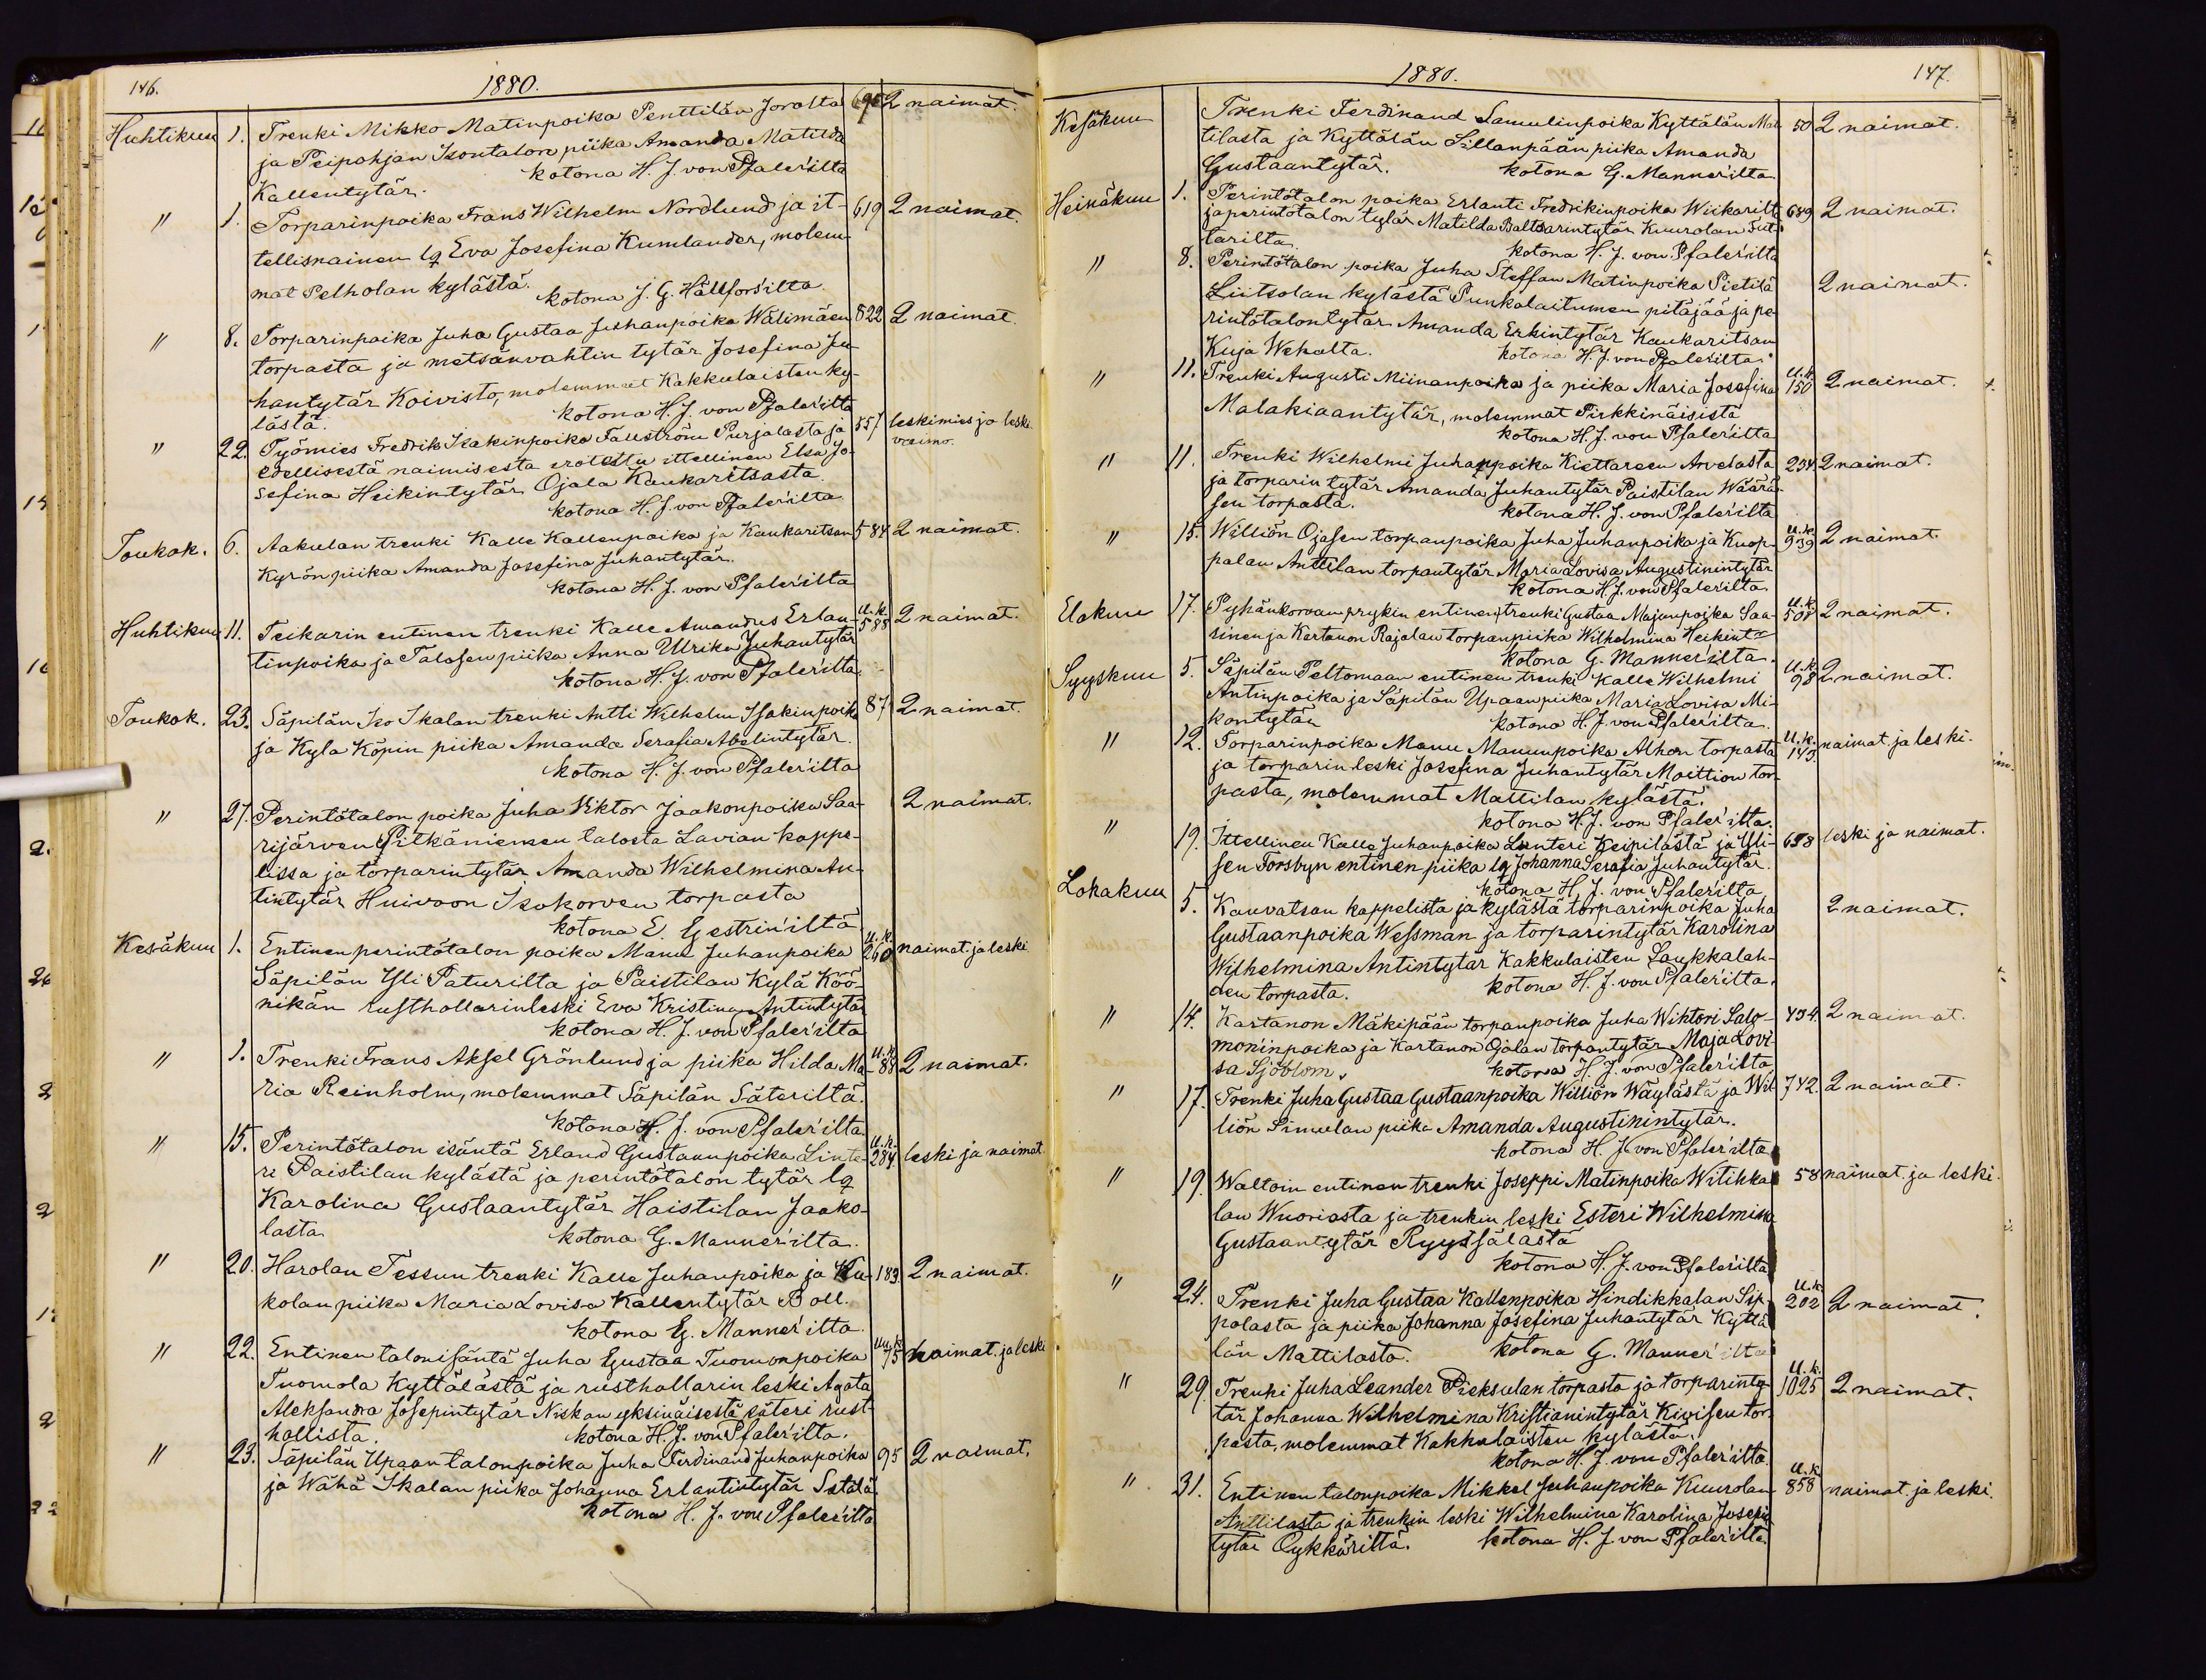 146.
1880.
Huhtikuu 1. Trenki Mikko Matinpoika Penttilän Joralta 695 2 naimat.
ja Peipohjan Isontalon piika Amanda Matilda
Kallentytär. kotona H. J. von Pfaler'ilta
" 1. Torparinpoika Frans Wilhelm Nordlund ja it- 619 2 naimat.
tellisnainen lq Eva Josefina Kumlander, molem-
mat Pelholan kylästä.
kotona J. G. Hällfors'ilta.
" 8. Torparinpoika Juha Gustaa Juhanpoika Wälimäen 822 2 naimat.
torpasta ja metsänvahtin tytär Josefina Ju-
hantytär Koivisto, molemmat Kakkulaisten ky-
lästä. kotona H. J. von Pfaler'ilta
" 22. Työmies Fredrik Isakinpoika Fallström Purjalasta ja 557 leskimies ja leski
edellisestä naimisesta erotettu ittellinen Elsa Jo- vaimo.
sefina Heikintytär Ojala Kaukaritsasta.
kotona H. J. von Pfaler'ilta
Toukok. 6. Aakulan trenki Kalle Kallenpoika ja Kaukaritsan 584 2 naimat.
Kyrön piika Amanda Josefina Juhantytär.
kotona H. J. von Pfaler'ilta
Huhtikuu 11. Teikarin entinen trenki Kalle Amandus Erlan- u.k. 588 2 naimat.
tinpoika ja Talosen piika Anna Ulrika Juhantytär
kotona H. J. von Pfaler'ilta.
Toukok. 23. Säpilän Iso Ikalan trenki Antti Wilhelm Isakinpoika 87 2 naimat.
ja Kyla Köpin piika Amanda Serafia Abelintytär.
kotona H. J. von Pfaler'ilta
" 27. Perintötalon poika Juha Viktor Jaakonpoika Saa- 2 naimat.
rijärven Pitkäniemen talosta Lavian kappe-
lissa ja torparintytär Amanda Wilhelmina An-
tintytär Huivoon Isokorven torpasta
kotona E. Gestrin'iltä
Kesäkuu 1. Entinen perintötalon poika Manu Juhanpoika u.k. 260 naimat. ja leski
Säpilän Yli Paturilta ja Paistilan Kylä Köö-
nikän rusthollarinleski Eva Kristina Antintytär
kotona H. J. von Pfaler'ilta
" 1. Trenki Frans Aksel Grönlund ja piika Hilda Ma- u.k. 88 2 naimat.
ria Reinholm, molemmat Säpilän Säteriltä.
kotona H. J. von Pfaler'ilta.
" 15. Perintötalon isäntä Erland Gustaanpoika Linte- u.k. 284. leski ja naimat.
ri Paistilan kylästä ja perintötalon tytär lq
Karolina Gustaantytär Haistilan Jaako-
lasta kotona G. Manner'ilta.
" 20. Harolan Tessun trenki Kalle Juhanpoika ja Ku- 189. 2 naimat.
kolan piika Maria Lovisa Kallentytär Boll.
kotona G. Manner'ilta.
" 22. Entinen talonisäntä Juha Gustaa Tuomonpoika u.k. 75 naimat. ja leski
Tuomola Kyttälästä ja rusthollarin leski Agata
Aleksandra Josepintytär Niskan yksinäisestä säteri rust-
hollista. kotona H. J. von Pfaler'ilta.
" 23. Säpilän Upaan talonpoika Juha Ferdinand Juhanpoika 95 2 naimat.
ja Wähä Ikalan piika Johanna Erlantintytär Sstälä
kotona H. J. von Pfaler'ilta
1880. 147.
Kesäkuu Trenki Ferdinand Samulinpoika Kyttälän Mat- 50 2 naimat.
tilasta ja Kyttälän Sillanpään piika Amanda
Gustaantytär. kotona G. Manner'ilta
Heinäkuu 1. Perintötalon poika Erlanti Fredrikinpoika Wiikarilt. 689 2 naimat.
ja perintötalon tytär Matilda Baltsarintytär Kuurolan Sut-
tarilta. kotona H. J. von Pfaler'ilta
" 8. Perintötalon poika Juha Steffan Matinpoika Pietilä 2 naimat.
Liitsolan kylästä Punkalaitumen pitäjää ja pe-
rintötalontytär Amanda Erkintytär Kaukaritsan
Kuja Wekalta. kotona H. J. von Pfaler'ilta
" 11. Trenki Augusti Miinanpoika ja piika Maria Josefina u.k. 150 2 naimat.
Malakiaantytär, molemmat Pirkkinäisistä
kotona H. J. von Pfaler'ilta
" 11. Trenki Wilhelmi Juhanpoika Kiettareen Arvelasta 234. 2 naimat.
ja torparin tytär Amanda Juhantytär Paistilan Wäärä-
sen torpasta. kotona H. J. von Pfaler'ilta
" 15. Williön Ojasen torpanpoika Juha Juhanpoika ja Kuop- u.k. 939 2 naimat.
palan Anttilan torpantytär Maria Lovisa Augustinintytär
kotona H. J. von Pfaler'ilta
Elokuu 17. Pyhänkorvan prykin entinen trenki Gustaa Majanpoika Saa- u.k. 508 2 naimat.
sinen ja Kertanon Rajalan torpanpiika Wilhelmina Heikint
kotona G. Manner'ilta.
Syyskuu 5. Säpilän Peltomaan entinen trenki Kalle Wilhelmi u.k. 98 2 naimat.
Antinpoika ja Säpilän Upaan piika Maria Lovisa Mi-
kontytär kotona H. J. von Pfaler'ilta.
" 12. Torparinpoika Manu Manunpoika Alhon torpasta u.k. 143. naimat. ja leski.
ja torparin leski Josefina Juhantytär Moittion tor-
pasta, molemmat Mattilan kylästä.
kotona H. J. von Pfaler'ilta.
" 19. Ittellinen Kalle Juhanpoika Lunteri Keipilästä ja Yli- 698 leski ja naimat.
sen Torsbyn entinen piika lq Johanna Serafia Juhantytär.
kotona H. J. von Pfaler'ilta
Lokakuu 5. Kauvatsan kappelista ja kylästä torparinpoika Juha 2 naimat.
Gustaanpoika Wessman ja torparintytär Karolina
Wilhelmina Antintytär Kakkulaisten Laukkalah-
den torpasta. kotona H. J. von Pfaler'ilta.
" 14. Kartanon Mäkipään torpanpoika Juha Wiktori Salo- 494. 2 naimat.
moninpoika ja Kartanon Ojalan torpantytär Maja Lovi-
sa Sjöblom. kotona H. J. von Pfaler'ilta
" 17. Trenki Juha Gustaa Gustaanpoika Williön Wäylästä ja Wil- 742. 2 naimat.
liön Simulan piika Amanda Augustinintytär.
kotona H. J. von Pfaler'ilta
" 19. Waltoin entinen trenki Joseppi Matinpoika Witikka- 58 naimat. ja leski.
lan Wuoriosta ja trenkin leski Esteri Wilhelmina
Gustaantytär Ryyssälästä
kotona H. J. von Pfaler'ilta
" 24. Trenki Juha Gustaa Kallenpoika Hindikkalan Sip- u.k. 202 2 naimat.
polasta ja piika Johanna Josefina Juhantytär Kyttä-
län Mattilasta. kotona G. Manner'ilta
" 29. Trenki Juha Leander Pieksulan torpasta ja torparinty- u.k. 1025 2 naimat.
tär Johanna Wilhelmina Kristianintytär Kivisen tor-
pasta, molemmat Kakkulaisten kylästä.
kotona H. J. von Pfaler'ilta.
" 31. Entinen talonpoika Mikkel Juhanpoika Kuurolan u.k. 858 naimat. ja leski.
Anttilasta ja trenkin leski Wilhelmina Karolina Josepin
tytär Öykkäriltä. kotona H. J. von Pfaler'ilta.